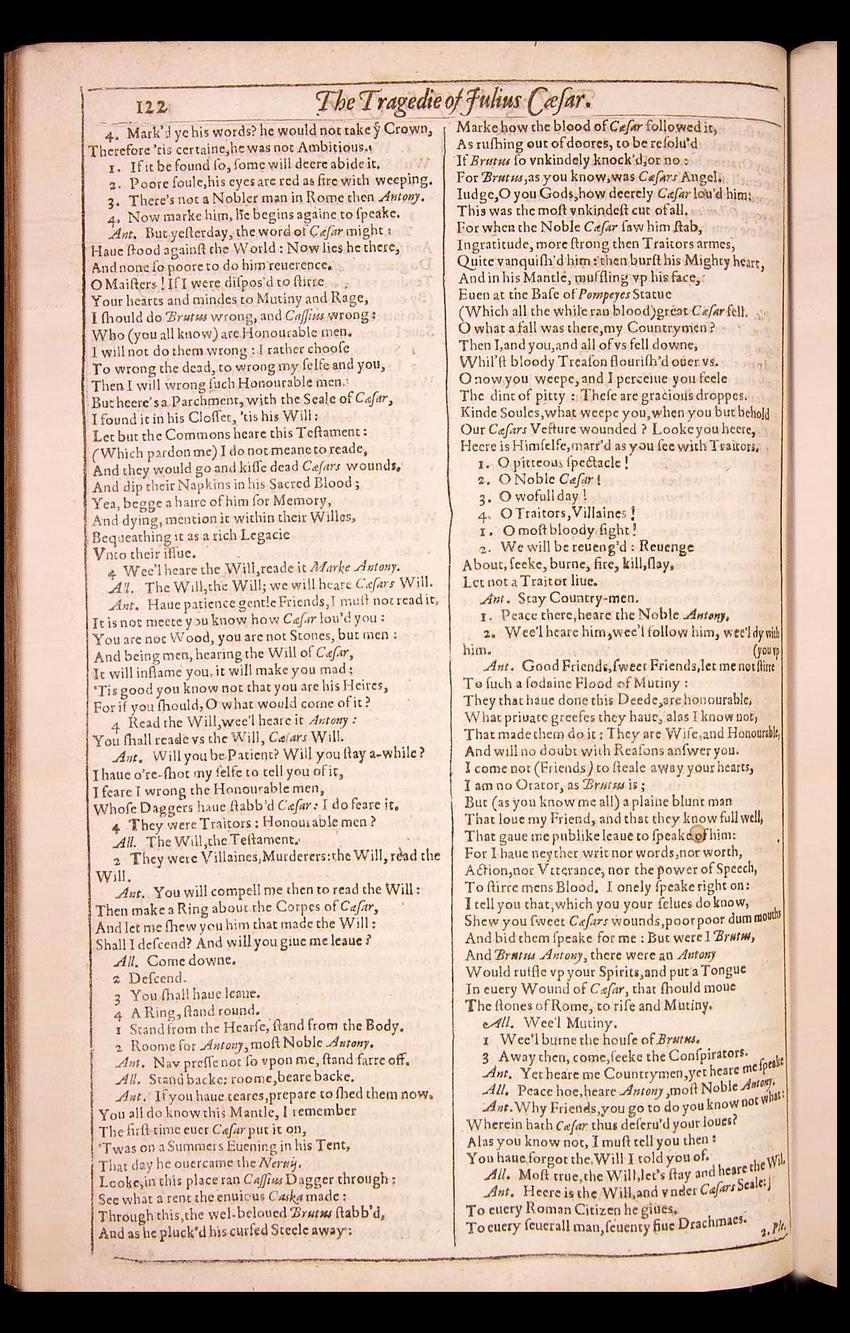 122
The Tragedie of Julius Cæsar.
4. Mark'd ye his words? he would not take ẏ Crown,
Therefore 'tis certaine, he was not Ambitious.
1. If it be found ſo, ſome will deere abide it.
2. Poore ſoule, his eyes are red as fire with weeping.
3. There's not a Nobler man in Rome then Antony.
4. Now marke him, he begins againe to ſpeake.
Ant. But yeſterday, the word of Cæſar might
Haue ſtood againſt the World: Now lies he there,
And none ſo poore to do him reuerence.
O Maiſters! If I were diſpos'd to ſtirre
Your hearts and mindes to Mutiny and Rage,
I ſhould do Brutus wrong, and Caſſius wrong:
Who (you all know) are Honourable men.
I will not do them wrong: I rather chooſe
To wrong the dead, to wrong my ſelfe and you,
Then I will wrong ſuch Honourable men.
But heere's a Parchment, with the Seale of Cæſar,
I found it in his Cloſſet, 'tis his Will:
Let but the Commons heare this Teſtament:
(Which pardon me) I do not meane to reade,
And they would go and kiſſe dead Cæſars wounds,
And dip their Napkins in his Sacred Blood;
Yea, begge a haire of him for Memory,
And dying, mention it within their Willes,
Bequeathing it as a rich Legacie
Vnto their iſſue.
4 Wee'l heare the Will, reade it Marke Antony.
All. The Will, the Will; we will heare Cæſars Will.
Ant. Haue patience gentle Friends, I muſt not read it,
It is not meete you know how Cæſar lou'd you:
You are not Wood, you are not Stones, but men:
And being men, hearing the Will of Cæſar,
It will inflame you, it will make you mad:
'Tis good you know not that you are his Heires,
For if you ſhould, O what would come of it?
4 Read the Will, wee'l heare it Antony:
You ſhall reade vs the Will, Cæſars Will.
Ant. Will you be Patient? Will you ſtay a-while?
I haue o're-ſhot my ſelfe to tell you of it,
I feare I wrong the Honourable men,
Whoſe Daggers haue ſtabb'd Cæſar: I do feare it.
4 They were Traitors: Honourable men?
All. The Will, the Teſtament.
2 They were Villaines, Murderers: the Will, read the
Will.
Ant. You will compell me then to read the Will:
Then make a Ring about the Corpes of Cæſar,
And let me ſhew you him that made the Will:
Shall I deſcend? And will you giue me leaue?
All. Come downe.
2 Deſcend.
3 You ſhall haue leaue.
4 A Ring, ſtand round.
1 Stand from the Hearſe, ſtand from the Body.
2 Roome for Antony, moſt Noble Antony.
Ant. Nay preſſe not ſo vpon me, ſtand farre off.
All. Stand backe: roome, beare backe.
Ant. If you haue teares, prepare to ſhed them now.
You all do know this Mantle, I remember
The firſt time euer Cæſar put it on,
'Twas on a Summers Euening in his Tent,
That day he ouercame the Neruij.
Looke, in this place ran Caſſius Dagger through:
See what a rent the enuious Caska made:
Through this, the wel-beloued Brutus ſtabb'd,
And as he pluck'd his curſed Steele away:
Marke how the blood of Cæſar followed it,
As ruſhing out of doores, to be reſolu'd
If Brutus ſo vnkindely knock'd, or no:
For Brutus, as you know, was Cæſars Angel.
Iudge, O you Gods, how deerely Cæſar lou'd him:
This was the moſt vnkindeſt cut of all.
For when the Noble Cæſar ſaw him ſtab,
Ingratitude, more ſtrong then Traitors armes,
Quite vanquiſh'd him: then burſt his Mighty heart,
And in his Mantle, muffling vp his face,
Euen at the Baſe of Pompeyes Statue
(Which all the while ran blood) great Cæſar fell.
O what a fall was there, my Countrymen?
Then I, and you, and all of vs fell downe,
Whil'ſt bloody Treaſon flouriſh'd ouer vs.
O now you weepe, and I perceiue you feele
The dint of pitty: Theſe are gracious droppes.
Kinde Soules, what weepe you, when you but behold
Our Cæſars Veſture wounded? Looke you heere,
Heere is Himſelfe, marr'd as you ſee with Traitors.
1. O pitteous ſpectacle!
2. O Noble Cæſar!
3. O wofull day!
4. O Traitors, Villaines!
1. O moſt bloody ſight!
2. We will be reueng'd: Reuenge
About, ſeeke, burne, fire, kill, ſlay,
Let not a Traitor liue.
Ant. Stay Country-men.
1. Peace there, heare the Noble Antony.
2. Wee'l heare him, wee'l follow him, wee'l dy with
him. (you vp
Ant. Good Friends, ſweet Friends, let me not ſtirre
To ſuch a ſodaine Flood of Mutiny:
They that haue done this Deede, are honourable.
What priuate greefes they haue, alas I know not,
That made them do it: They are Wiſe, and Honourable,
And will no doubt with Reaſons anſwer you.
I come not (Friends) to ſteale away your hearts,
I am no Orator, as Brutus is;
But (as you know me all) a plaine blunt man
That loue my Friend, and that they know full well,
That gaue me publike leaue to ſpeake of him:
For I haue neyther writ nor words, nor worth,
Action, nor Vtterance, nor the power of Speech,
To ſtirre mens Blood. I onely ſpeake right on:
I tell you that, which you your ſelues do know,
Shew you ſweet Cæſars wounds, poor poor dum mouths
And bid them ſpeake for me: But were I Brutus,
And Brutus Antony, there were an Antony
Would ruffle vp your Spirits, and put a Tongue
In euery Wound of Cæſar, that ſhould moue
The ſtones of Rome, to riſe and Mutiny.
All. Wee'l Mutiny.
1 Wee'l burne the houſe of Brutus.
3 Away then, come, ſeeke the Conſpirators.
Ant. Yet heare me Countrymen, yet heare me ſpeake
All. Peace hoe, heare Antony, moſt Noble Antony.
Ant. Why Friends, you go to do you know not what:
Wherein hath Cæſar thus deſeru'd your loues?
Alas you know not, I muſt tell you then:
You haue forgot the Will I told you of.
All. Moſt true, the Will, let's ſtay and heare the Wil.
Ant. Heere is the Will, and vnder Cæſars Seale:
To euery Roman Citizen he giues,
To euery ſeuerall man, ſeuenty fiue Drachmaes.
2. Ple.